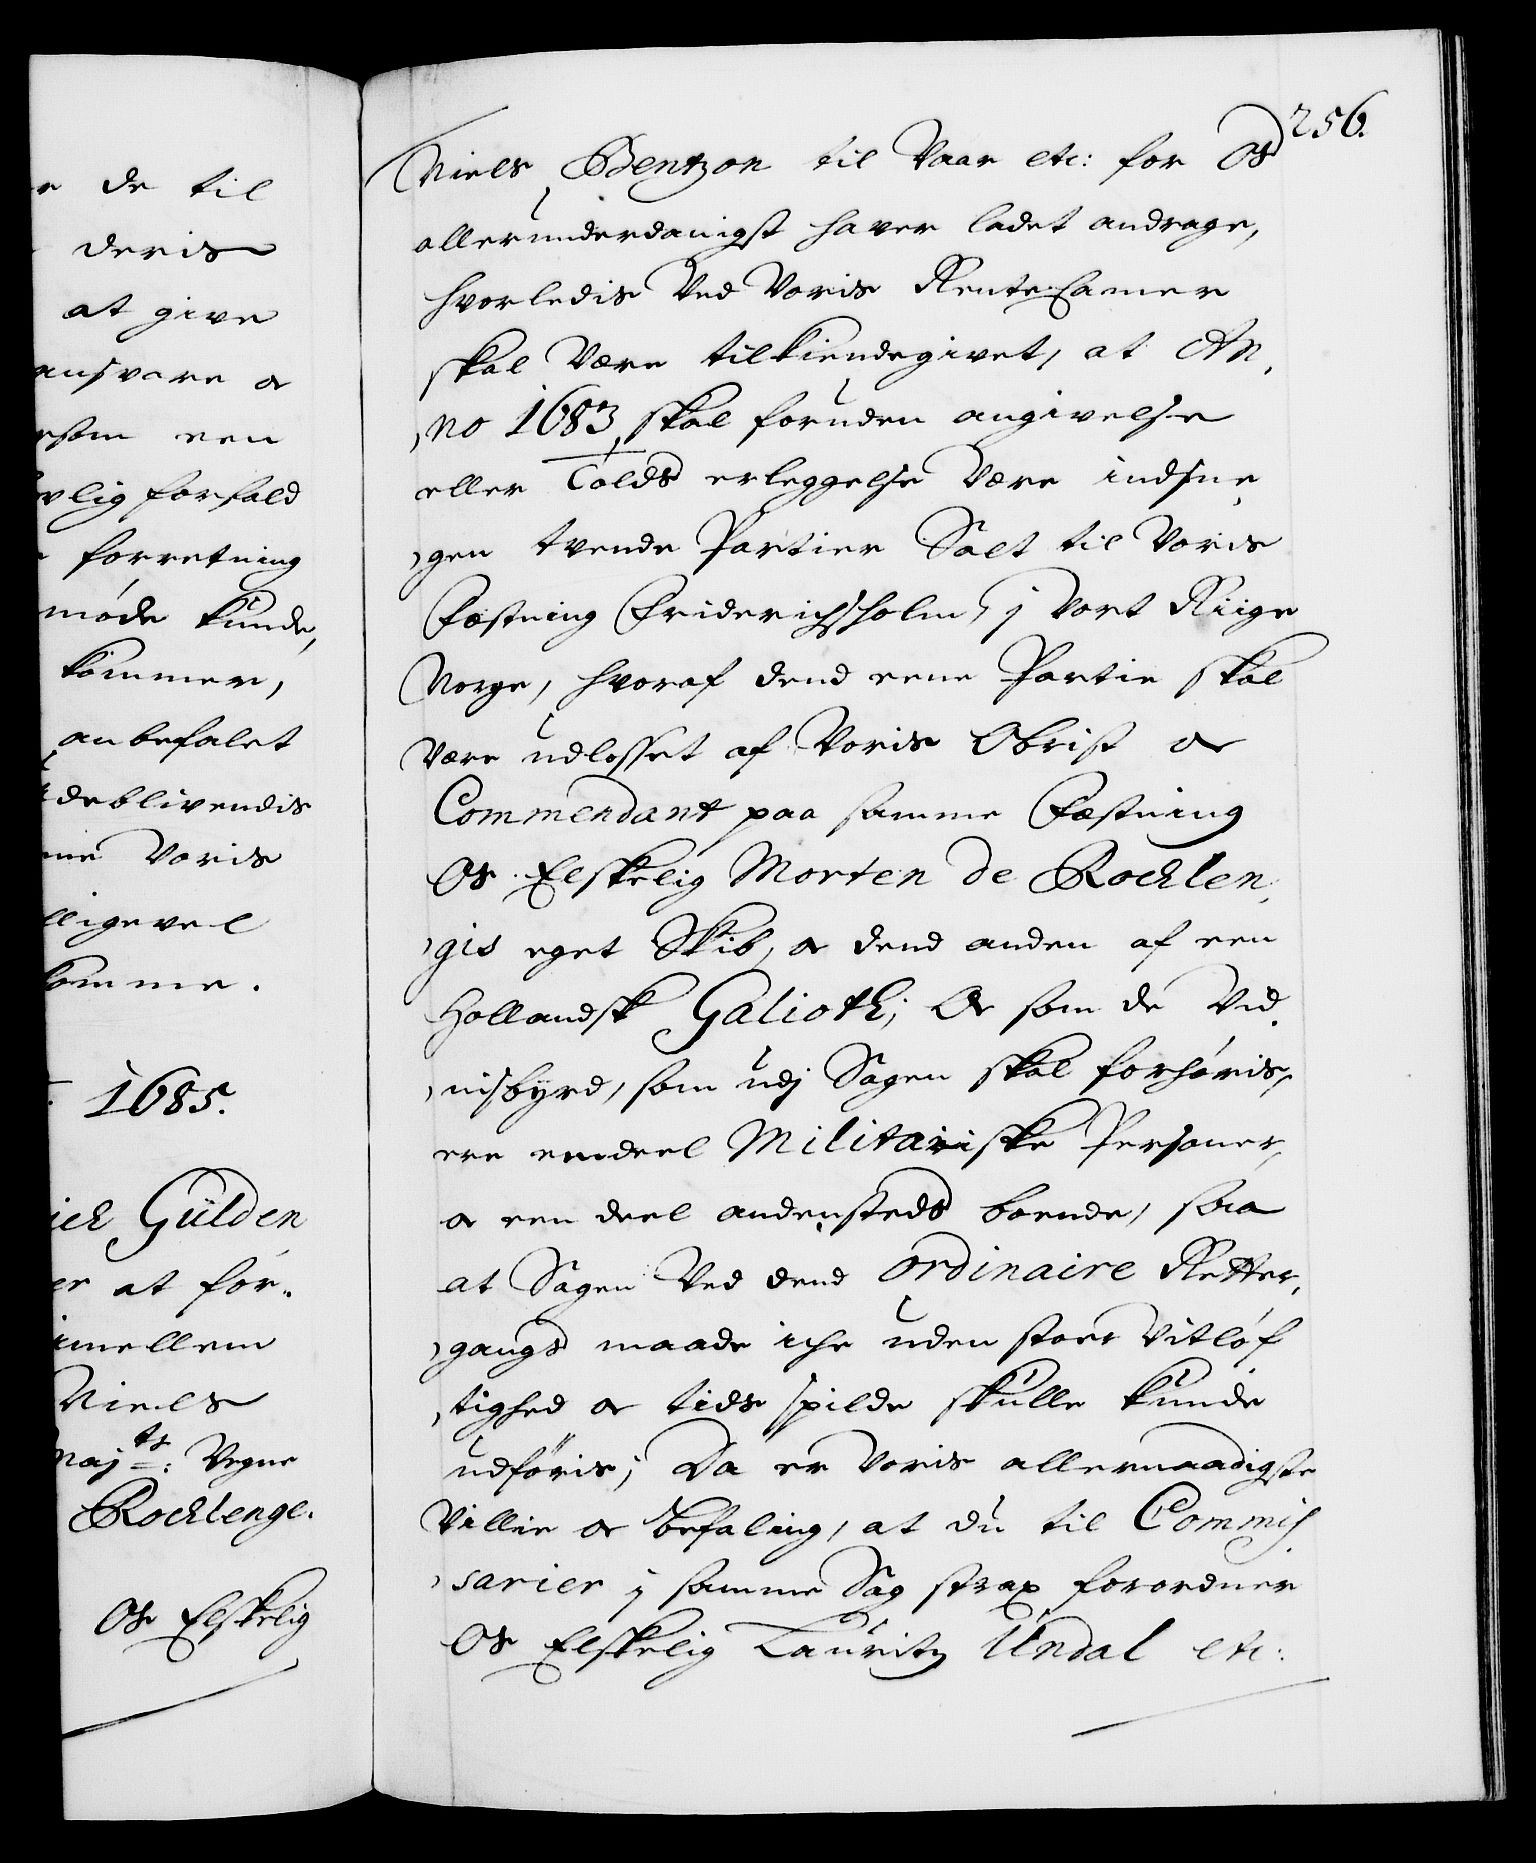 de til
deris
at give
ansvare oc
som een
lig forfald
forretning
møde kunde,
kommer,
anbefalet
deblivendis
Voris
ligevel
komme.
1685.
Gülden
at for-
imellem
Niels
Maj.ts: Vegne
Rochlenge.
Os Elskelig
256.
Niels Bentzon til Vaar etc: for Os
allerunderdanigst haver ladet andrage,
hvorledis Ved Voris Rente Camer
skal Være tilkiendegivet, at An,
,no 1683, skal foruden angivelse
eller Tolds erleggelse Være indsne,
,gen tvende Partier Salt til Voris
Fæstning Friderichsholm, j Vort Riige
Norge, hvoraf dend eene Partie skal
Være udlosset af Voris Obrist oc
Commendant paa samme Fæstning
Os Elskelig Morten de Rochlen,
,gis eget Skib, oc dend anden af een
Hollandsk Galioth; Oc som de Vid,
,nisbyrd, som udj Sagen skal forhøris,
ere eendeel Militariske Personer,
oc een deel andensteds boende, saa
at Sagen Ved dend ordinaire Retter,
,gangs maade iche uden stoer Vitløf
,tighed oc tids spilde skulle kunde
udføris; Da er Voris allernaadigste
Villie oc Befaling, at du til Commis
,sarier j samme Sag strax forordner
Os Elskelig Lauritz Undal etc: